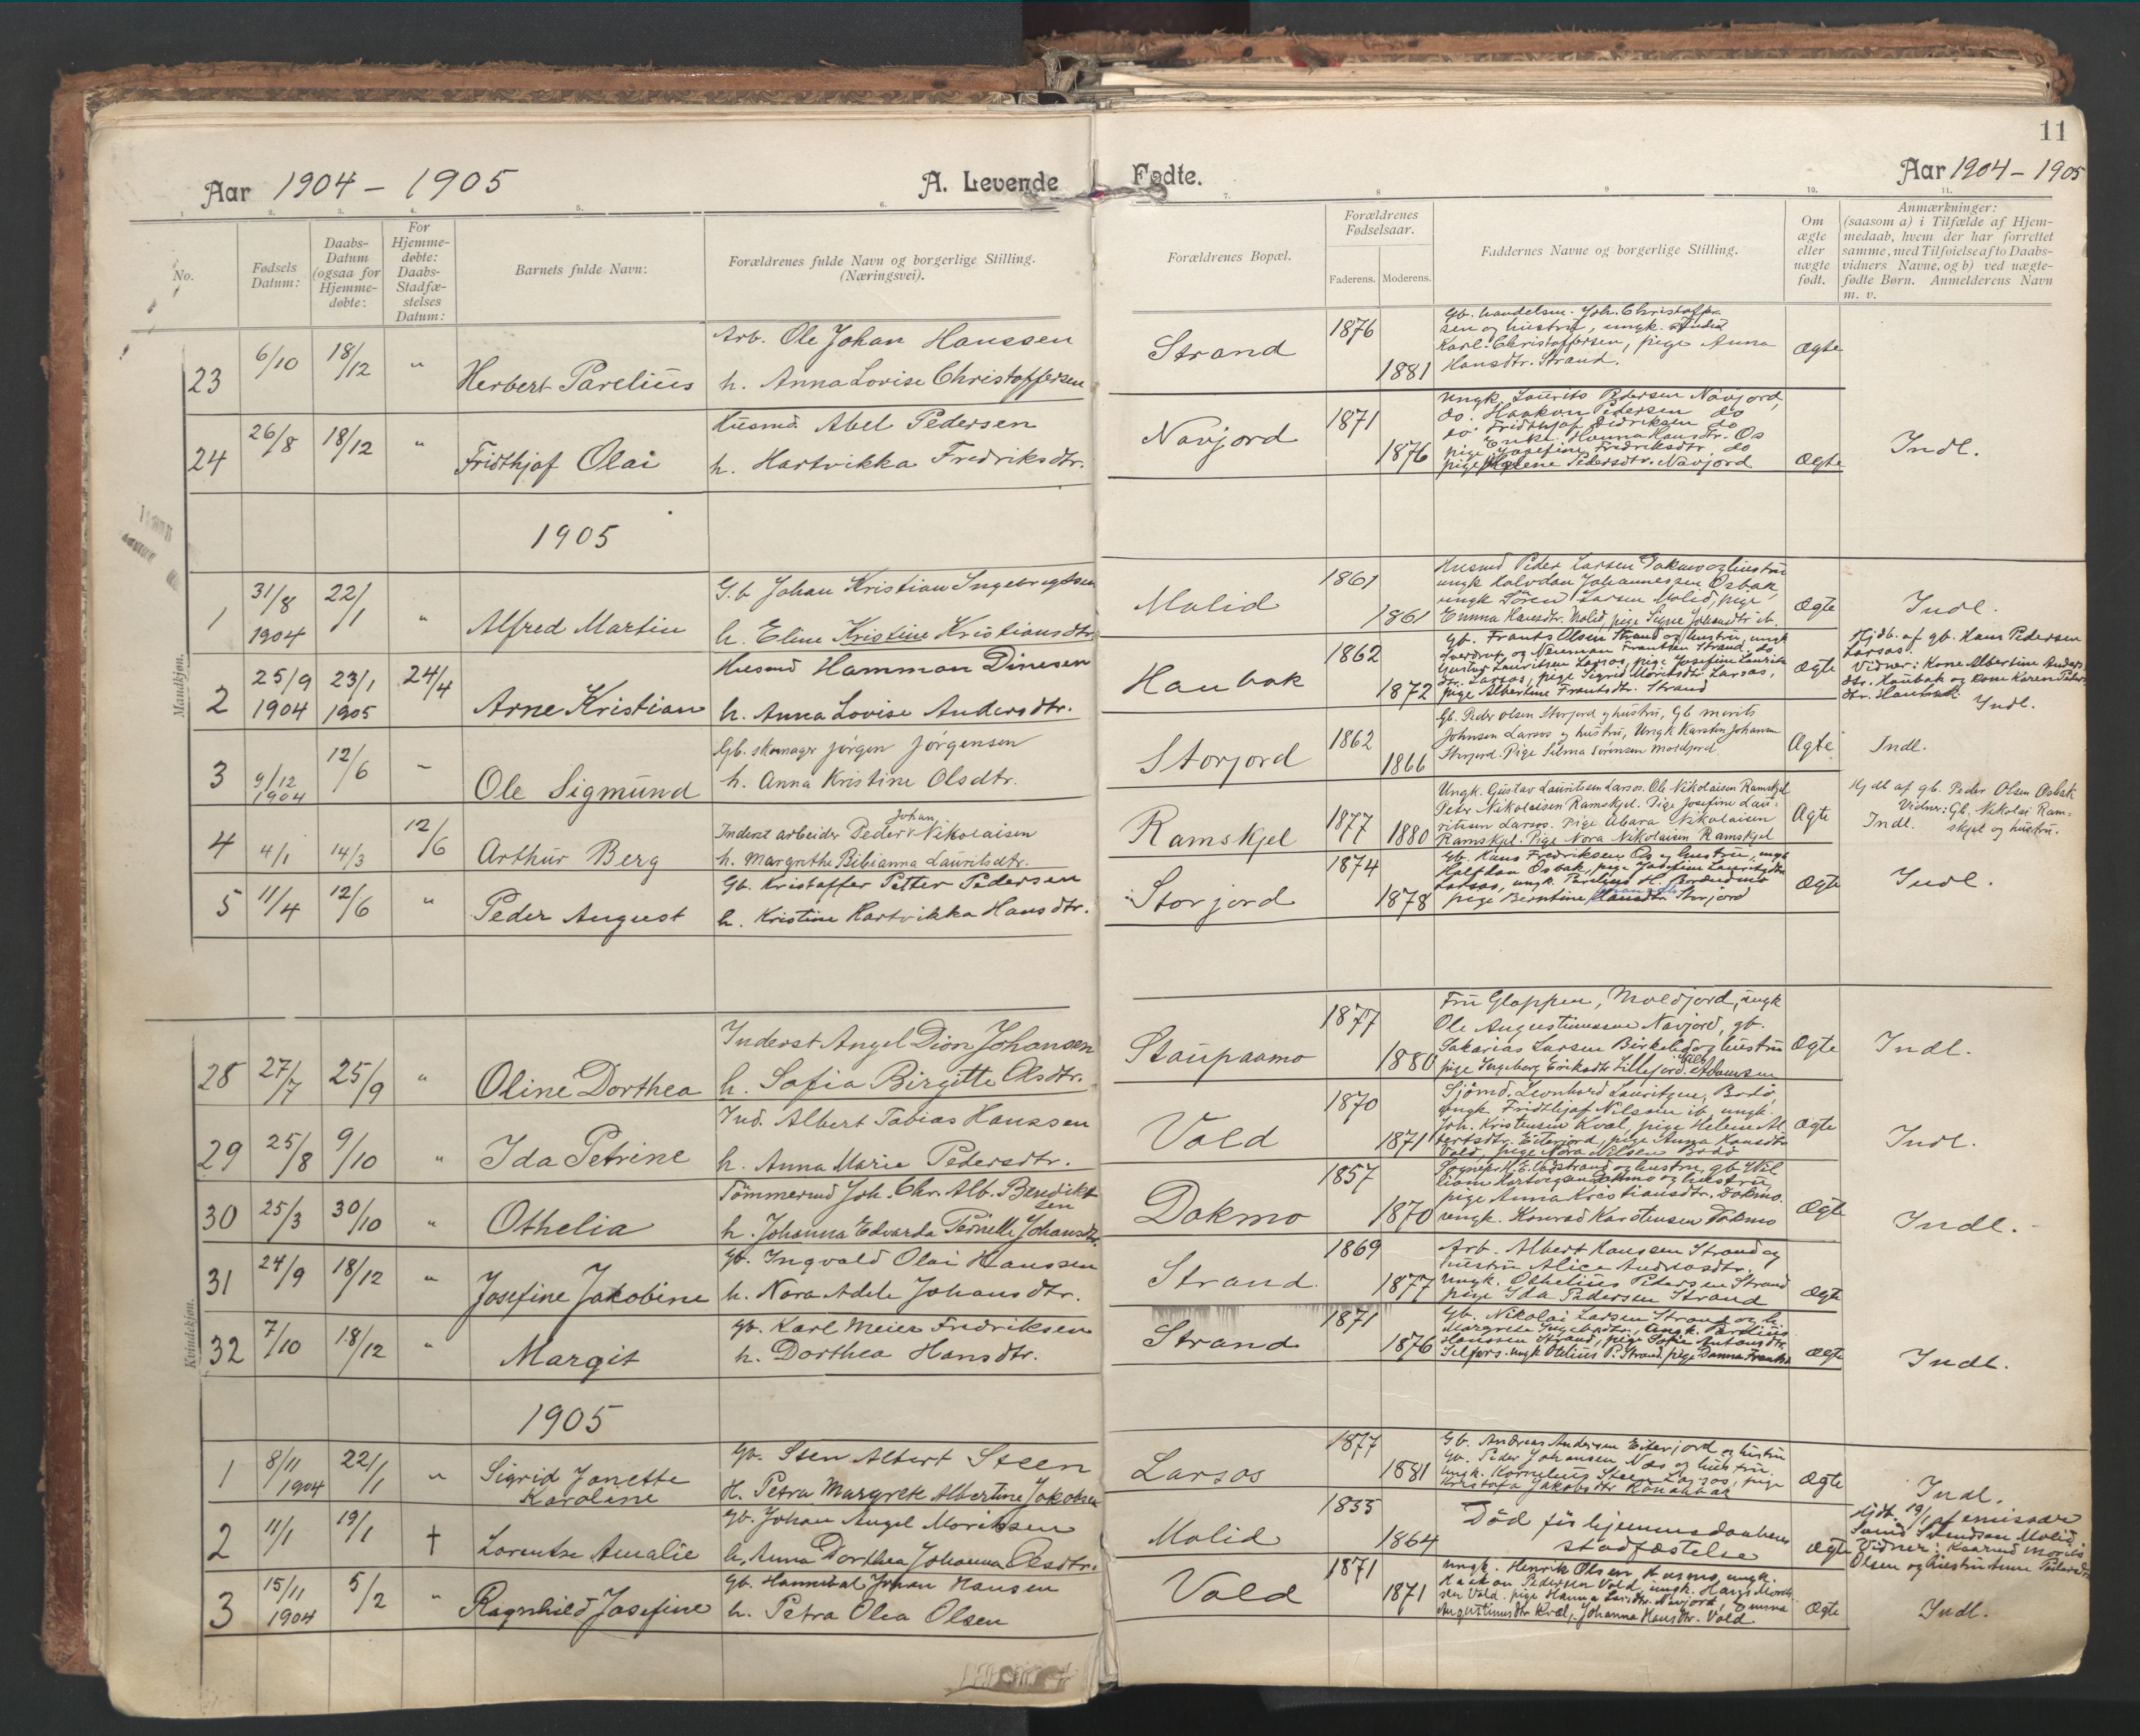 11
Aar 1904 – 1905
A. Levende
Fødte.
Aar 1904 – 1905
1. 2. 3. 4. 5. 6. 7. 8 9 10. 11.
No.
Fødsels Datum:
Daabs-Datum (ogsaa for Hjemme-døbte:
For Hjemme-døbte: Daabs-Stadfæ-stelses Datum:
Barnets fulde Navn:
Forældrenes fulde Navn og borgerlige Stilling. (Næringsvei).
Forældrenes Bopæl.
Forældrenes Fødselsaar.
Faderens. Moderens.
Faddernes Navne og borgerlige Stilling.
Om ægte eller uægte født.
Anmærkninger:
(saasom a) i Tilfælde af Hjem-
medaab, hvem der har forrettet
samme, med Tilføielse af to Daabs-
vidners Navne, og b) ved uægte-
fødte Børn. Anmelderens Navn
m. v.
Mandkjøn.
23 6/10 18/12 " Herbert Parelius
Arb. Ole Johan Hanssen
h. Anna Lovise Christoffersen
Strand 1876 1881
Gb. handelsm. Joh. Christoffer-
sen og hustru, ungk.
Karl Christoffersen, pige Anna
Hansdtr. Strand.
Ægte
24 26/8 18/12 " Fridthjof Olai
Husmd Abel Pedersen
h. Hartvikka Fredriksdtr.
Navjord 1871 1876
ungk. Laurits Pedersen Navjord,
do. Haakon Pedersen do
do. Fridthjof Didriksen do
Enke Hanna Hansdtr. Os
pige Josefine Fredriksdtr. do
pige Helene Pedersdtr. Navjord
Ægte Indl.
1905
1 31/8 1904 22/1 " Alfred Martin
G.b Johan Kristian Ingebrigtsen
h. Eline Kristine Kristiansdtr.
Molid 1861 1861
Husmd Peder Larsen Dokmo og hustru
ungk Halvdan Johannessen Osbak,
ungk Sören Larsen Molid, pige
Emma Hansdtr. Molid, pige Signe Johansdtr ib.
Ægte Indl.
2 25/9 1904 23/1 1905 24/4 Arne Kristian
Husmd Hamman Dinesen
h. Anna Lovise Andersdtr.
Haubak 1862 1872
Gb. Frants Olsen Strand og hustru, ungk
Sverdrup og Neuman Frantsen Strand, do
Gustav Lauritsen Larsos, pige Josefine Laurits
dtr. Larsos, pige Sigrid Moritsdtr. Larsos,
pige Albertine Frantsdtr. Strand
Ægte
Hjdb. af gb. Hans Pedersen
Larsos.
Vidner: Kone Albertine Anders
dtr. Haubak og kone Karen Peders
dtr. Haubak Indl.
3 9/12 1904 12/6 – Ole Sigmund
Gb. skomager Jørgen Jørgensen
h. Anna Kristine Olsdtr.
Storjord 1862 1866
Gb. Peder Olsen Storjord og hustru, Gb Morits
Johnsen Larsos og hustru, Ungk Karsten Johansen
Storjord. Pige Selma Sørensen Moldjord
Ægte Indl.
4 4/1 14/3 12/6 Arthur Berg
Inderst arbeider Peder Johan Nikolaisen
h. Margrethe Bibianna Lauritsdtr.
Ramskjel 1877 1880
Ungk. Gustav Lauritsen Larsos. Ole Nikolaisen Ramskjel
Peter Nikolaisen Ramskjel. Pige Josefine Lau-
ritsen Larsos. Pige Nikolaisen
Ramskjel. Pige Nora Nikolaisen Ramskjel
Ægte
Hj db af gb. Peder Olsen Osbak
Vidner: Gb. Nikolai Ram-
Indl. skjel og hustru.
5 11/4 12/6 " Peder August
Gb. Kristoffer Petter Pedersen
h. Kristine Hartvikka Hansdtr.
Storjord 1874 1878
Gb. Hans Fredriksen Os og hustru, ungk
Halfdan Osbak, pige Josefine Lauritsdtr
Larsos, ungk. Parelius H.
pige Berntine Hansdtr Storjord
Ægte Indl.
Kvindekjøn.
28 27/7 25/9 " Oline Dorthea
Inderst Angel Dion Johansen
h. Sofia Birgitte Olsdtr.
Staupaamo 1877 1880
Fru Gloppen, Moldjord, ungk
Ole Augustinussen Navjord, gb.
Sakarias Larsen Birkelid og hustru
pige Ingeborg Eriksdtr Lillefjord. Adamsen
Ægte Indl.
29 25/8 9/10 " Ida Petrine
Ind. Albert Tobias Hanssen
h. Anna Marie Pedersdtr.
Vold 1870 1871
Sjömd. Leonhard Lauritzen, Bodö,
ungk. Fridthjof Nilssen ib, ungk.
Joh. Kristensen Kvæl, pige Helene Al-
bertsdtr. Eiterjord, pige Anna Hansdtr
Vold, pige Nora Nilsen Bodö
Ægte Indl.
30 25/3 30/10 " Othelia
Tömmermd Joh. Chr. Alb. Benedikt
sen
h. Johanna Edvarda Pernille Johansdtr.
Dokmo 1857 1870
Sognepr. H. E. Vadstrand og hustru, gb. Wil
liam Hartvigsen Dokmo og hustru,
pige Anna Kristiansdtr. Dokmo.
ungk. Konrad Karstensen Dokmo
Ægte Indl.
31 24/9 18/12 " Josefine Jakobine
Gb. Ingvald Olai Hanssen
h. Nora Adele Johansdtr.
Strand. 1869 1877
Arb. Albert Hanssen Strand og
hustru Alice Andreasdtr.
ungk. Othelius Pedersen Strand
pige Ida Pedersen Strand
Ægte
32 7/10 18/12 " Margit
Gb. Karl Meier Fredriksen
h. Dorthea Hansdtr.
Strand 1871 1876
Gb. Nikolai Larsen Strand og h.
Margrete Ingebrdtr., Ungk. Parelius
Hanssen Strand, pige Sofie Antonsdtr.
Selfors. ungk Otelius P. Strand, pige Danna Frants
Ægte Indl.
1905
1 8/11 1904 22/1 " Sigrid Janette
Karoline
Gb. Sten Albert Steen
H. Petra Margrete Albertine Jakobsen
Larsos 1877 1881
Gb. Andreas Andersen Eiterjord og hustru
Gb. Peder Johansen Næs og hustru.
ungk. Kornelius Steen Larsos, pige
Kristofa Jakobsdtr
Ægte Indl.
2 11/1 19/1 † Lorentse Amalie
Gb. Johan Angel Moritsen
h. Anna Dorthea Johanna Olsdtr.
Molid 1855 1864
Död för hjemmedaabens
stadfæstelse
Ægte
Hjdb. 19/1 af emissær
Svendsen Molid,
Vidner: Morits
Olsen og hustru Pedersdtr
3 15/11 1904 5/2 " Ragnhild Josefine
Gb. Hannibal Johan Hansen
h. Petra Olea Olsen
Vold 1871 1871
ungk. Henrik Olsen Husmo, ungk.
Haakon Pedersen Vold, ungk. Hans Morit-
sen Vold. pige Hanna Larsdtr. Navjord, Emma
Augustinusdtr Kvæl, Johanna Hansdtr. Vold
Ægte Indl.